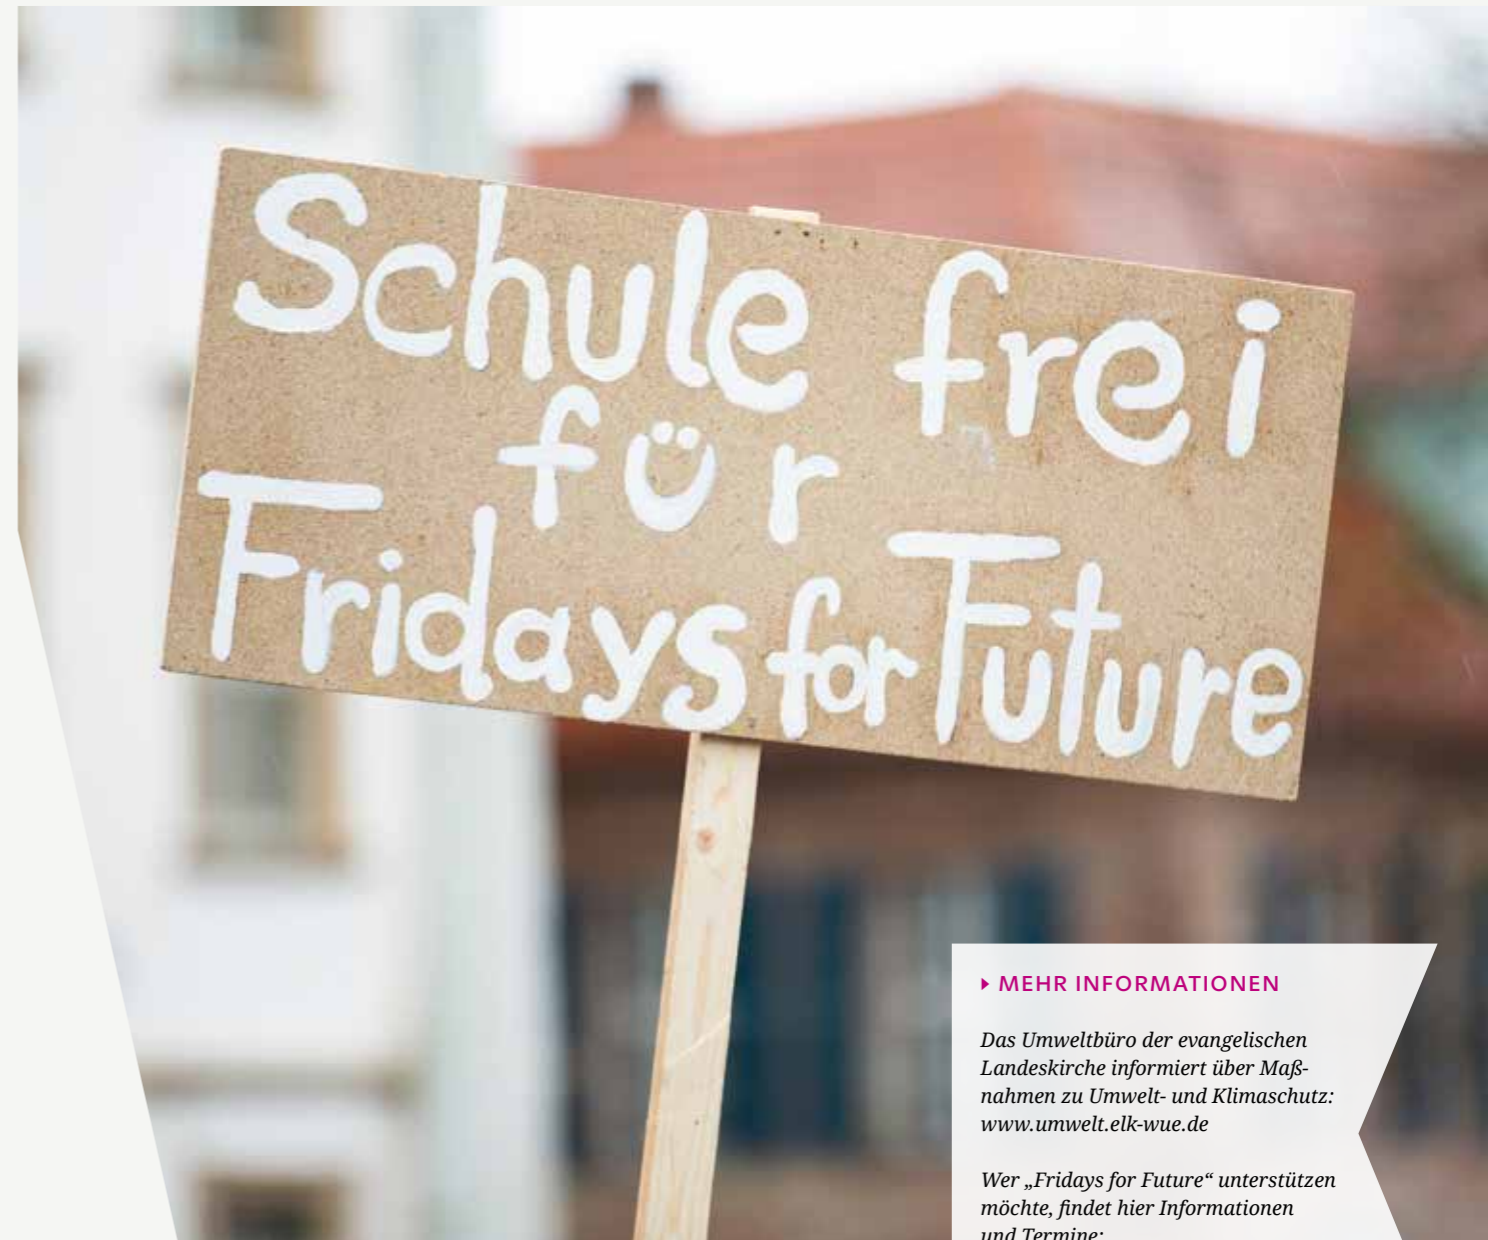 Schule frei
für
Fridays for Future
MEHR INFORMATIONEN
Das Umweltbüro der evangelischen
Landeskirche informiert über Maß-
nahmen zu Umwelt- und Klimaschutz:
www.umwelt.elk-wue.de
Wer „Fridays for Future“ unterstützen
möchte, findet hier Informationen
und Termine: